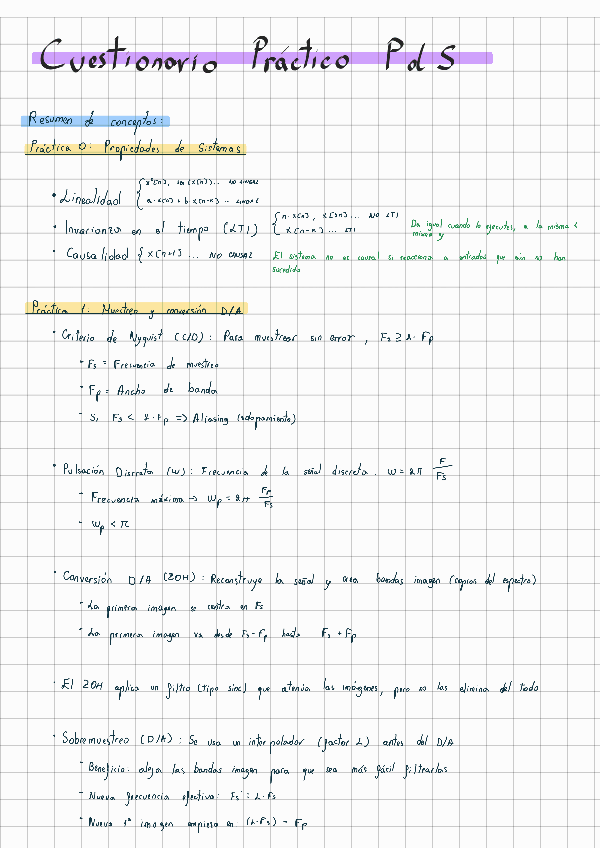 Cuestionario Práctico PdS
Resumen de conceptos:
Práctica 0: Propiedades de Sistemas
• Linealidad { x²[n], sen(x[n]) ... NO LINEAL
a·x[n] + b x[n-k] ... LINEAL
• Invarianza en el tiempo (LTI) { n·x[n], x[3n] ... NO LTI
x[n-k] ... LTI
Da igual cuando lo ejecutes, a la misma x
misma y
• Causalidad { x[n+1] ... NO CAUSAL
El sistema no es causal si reacciona a entradas que aún no han
sucedido
Práctica 1: Muestreo y conversión D/A
• Criterio de Nyquist (C/D): Para muestrear sin error, Fs ≥ 2·Fp
- Fs = Frecuencia de muestreo
- Fp = Ancho de banda
- Si Fs < 2·Fp => Aliasing (solapamiento)
• Pulsación Discreta (ω): Frecuencia de la señal discreta. ω = 2π F/Fs
- Frecuencia máxima → ωp = 2π Fp/Fs
- ωp < π
• Conversión D/A (ZOH): Reconstruye la señal y crea bandas imagen (copias del espectro)
- La primera imagen se centra en Fs
- La primera imagen va desde Fs-Fp hasta Fs+Fp
• El ZOH aplica un filtro (tipo sinc) que atenúa las imágenes, pero no las elimina del todo
• Sobremuestreo (D/A): Se usa un interpolador (factor L) antes del D/A
- Beneficio: aleja las bandas imagen para que sea más fácil filtrarlas
- Nueva frecuencia efectiva: Fs' = L·Fs
- Nueva 1ª imagen empieza en (L·Fs) - Fp